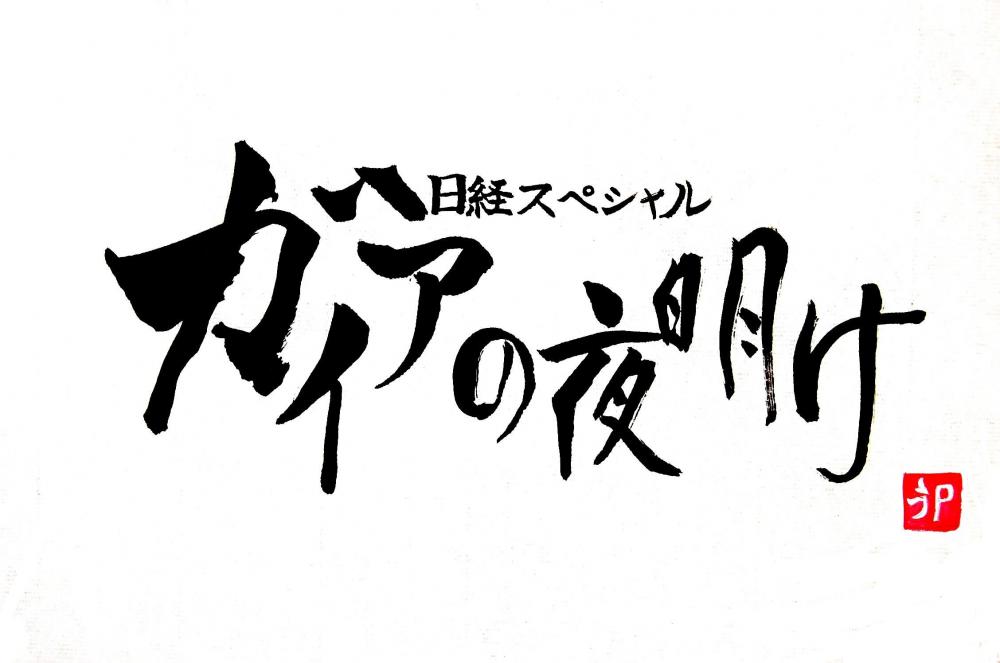 日経スペシャル
ガイアの夜明け
うP